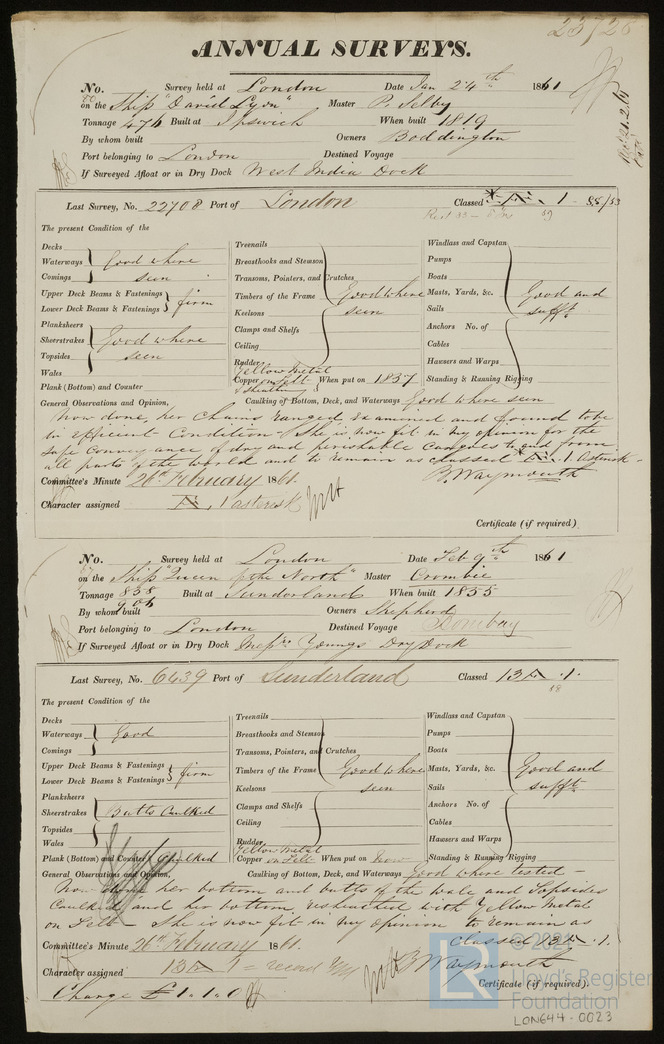 23726
ANNUAL SURVEYS.
No. Survey held at London Date Jan 24th 1861
on the Ship "David Lyon" Master P. Selby
Tonnage 476 Built at Ipswich When built 1819
By whom built Owners Boddington
Port belonging to London Destined Voyage
If Surveyed Afloat or in Dry Dock West India Dock
Last Survey, No. 22708 Port of London Classed * Æ 1
The present Condition of the
Decks
Waterways
Comings
Good where seen
Upper Deck Beams & Fastenings
Lower Deck Beams & Fastenings
firm
Planksheers
Sheerstrakes
Topsides
Wales
Good where seen
Plank (Bottom) and Counter
Treenails
Breasthooks and Stemson
Transoms, Pointers, and Crutches
Timbers of the Frame
Keelsons
Clamps and Shelfs
Ceiling
Rudder
Good where seen
Yellow Metal
Copper on Felt When put on 1857
Windlass and Capstan
Pumps
Boats
Masts, Yards, &c.
Sails
Anchors No. of
Cables
Hawsers and Warps
Standing & Running Rigging
Good and sufft
General Observations and Opinion, Caulking of Bottom, Deck, and Waterways Good where seen
Now done, her Chains ranged examined and found to be
in efficient Condition She is now fit in my opinion for the
safe conveyance of dry and perishable Cargoes to and from
all parts of the world and to remain as classed Æ 1 Asterisk
Committee's Minute 26th February 1861. B. Waymouth
Character assigned Æ 1 asterisk
Certificate (if required)
No. Survey held at London Date Feb 9th 1861
on the Ship "Queen of the North" Master Crombie
Tonnage 838 Built at Sunderland When built 1855
906
By whom built Owners Shepherd
Port belonging to London Destined Voyage Bombay
If Surveyed Afloat or in Dry Dock Messrs Youngs Dry Dock
Last Survey, No. 6439 Port of Sunderland Classed 13 A .1.
The present Condition of the
Decks
Waterways
Comings
Good
Upper Deck Beams & Fastenings
Lower Deck Beams & Fastenings
firm
Planksheers
Sheerstrakes
Topsides
Wales
Butts Caulked
Plank (Bottom) and Counter Caulked
Treenails
Breasthooks and Stemson
Transoms, Pointers, and Crutches
Timbers of the Frame
Keelsons
Clamps and Shelfs
Ceiling
Rudder
Good where seen
Yellow Metal
Copper on Felt When put on Now
Windlass and Capstan
Pumps
Boats
Masts, Yards, &c.
Sails
Anchors No. of
Cables
Hawsers and Warps
Standing & Running Rigging
Good and sufft
General Observations and Opinion, Caulking of Bottom, Deck, and Waterways Good where tested –
Now done her bottom and butts of the wale and Topsides
Caulked and her bottom resheathed with Yellow Metal
on Felt – She is now fit in my opinion to remain as
classed 13 A .1.
Committee's Minute 26th February 1861. B. Waymouth
Character assigned 13 A 1
Certificate (if required).
Charge £1.1.0
© 2021
Lloyd's Register
Foundation
LON644-0023